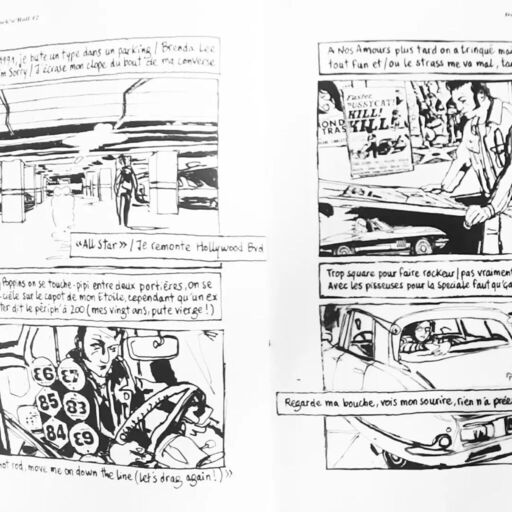 Rock'n'Roll #2
1991, je bute un type dans un parking / Brenda Lee
I'm Sorry / J'écrase mon clope du bout de ma converse
«All Star» / Je remonte Hollywood Bvd
Poppins on se touche-pipi entre deux portières, on se
sur le capot de mon étoile, cependant qu'un ex
dit le périph' à 200 (mes vingt ans, pute vierge!)
63
73
85
83
84
69
D
hot rod, move me on down the line (Let's drag again!) »
A Nos Amours plus tard on a trinqué
tout fun et/ou le strass me va mal,
Faster
PUSSYCAT!
KILL!
KILL!
OND
TRAS
Trop square pour faire rockeur / pas vraiment
Avec les pisseuses pour la speciale faut qu'
Regarde ma bouche, vois mon sourire, rien n'a